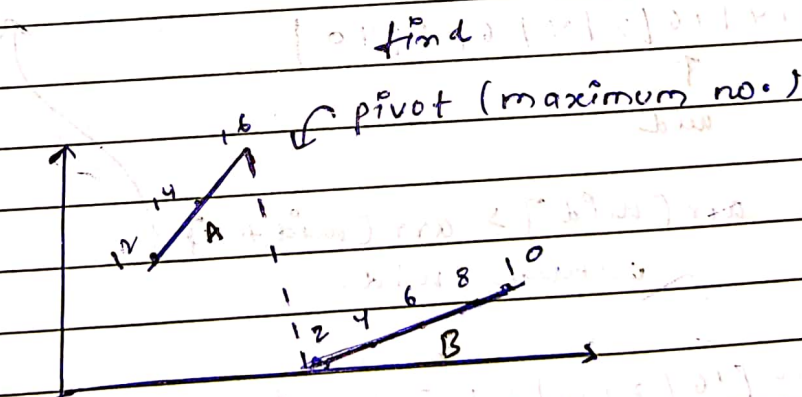 find
pivot (maximum no.)
16
14
12
A
2 4 6 8 10
B